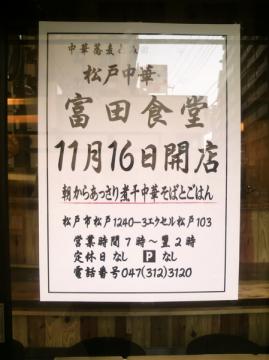 中華蕎麦と
松戸中華
富田食堂
11月16日開店
朝からあっさり煮干中華そばとごはん
松戸市松戸1240-3エクセル松戸103
営業時間 7時〜翌2時
定休日 なし P なし
電話番号 047(312)3120